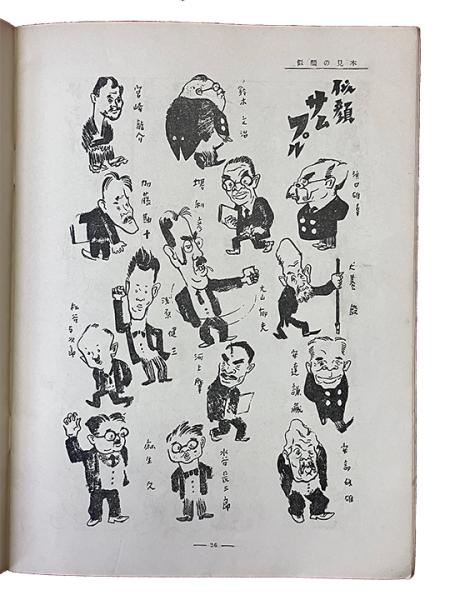 似顔の見本
似顔
サムプル
鈴木文治
宮崎龍介
浜口雄幸
堺利彦
加藤勘十
犬養毅
大山郁夫
浅原健三
松谷与次郎
安達謙蔵
河上肇
安部磯雄
水谷長三郎
麻生久
— 26 —